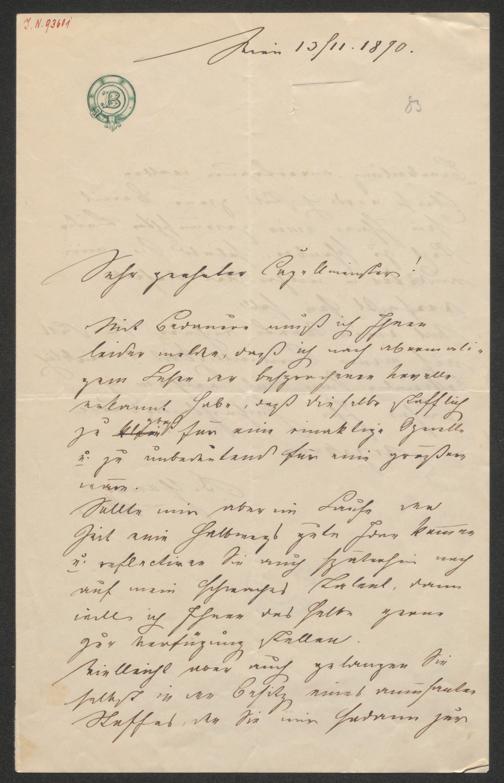 J. N. 93611
Wien 13/11. 1890.
B
83
Sehr geehrter Capellmeister!
Mit Bedauern muß ich Ihnen
leider melden, daß ich nach abermali-
gem Lesen der besprochenen Novelle
erkannt habe, daß dieselbe stofflich
zu groß für eine einaktige Operette
u. zu unbedeutend für eine größere
wäre.
Sollte mir aber im Laufe der
Zeit eine halbwegs gute Idee kommen
u. reflectiren Sie auch späterhin noch
auf mein schwaches Talent, dann
will ich Ihnen das selbe gerne
zur Verfügung stellen.
Vielleicht aber auch gelangen Sie
selbst in den Besitz eines amusanten
Stoffes, den Sie mir sodann zur